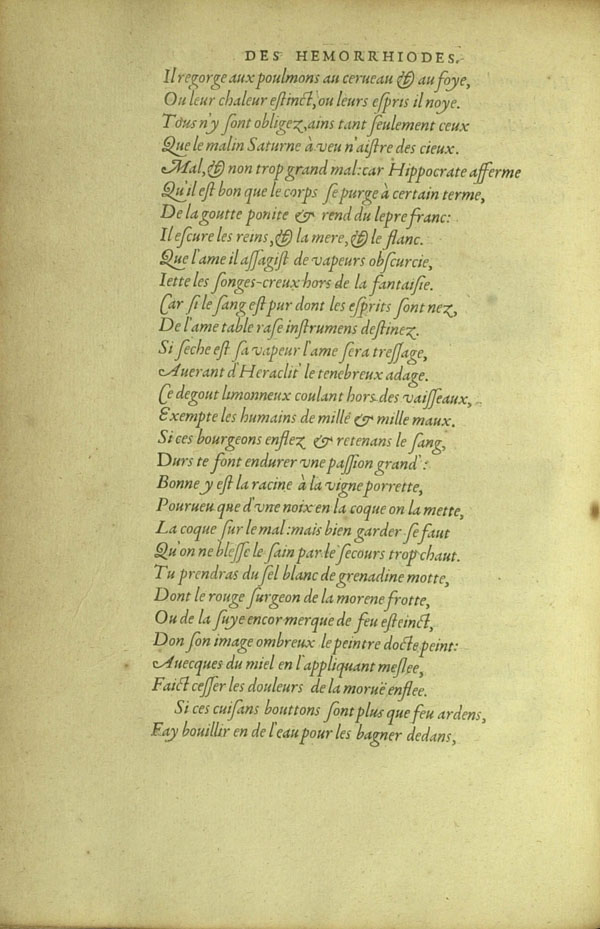 DES HEMORRHIODES.
Il regorge aux poulmons au cerueau & au foye,
Ou leur chaleur eſtinct, ou leurs eſpris il noye.
Tous n'y ſont obligez, ains tant ſeulement ceux
Que le malin Saturne à veu n'aiſtre des cieux.
Mal, & non trop grand mal: car Hippocrate afferme
Qu'il eſt bon que le corps ſe purge à certain terme,
De la goutte ponite & rend du lepre franc:
Il eſcure les reins, & la mere, & le flanc.
Que l'ame il aſſagiſt de vapeurs obſcurcie,
Iette les ſonges-creux hors de la fantaiſie.
Car ſi le ſang eſt pur dont les eſprits ſont nez,
De l'ame table raſe inſtrumens deſtinez.
Si ſeche eſt ſa vapeur l'ame ſera treſſage,
Auerant d'Heraclit' le tenebreux adage.
Ce degout limonneux coulant hors des vaiſſeaux,
Exempte les humains de mille & mille maux.
Si ces bourgeons enflez & retenans le ſang,
Durs te font endurer vne paſſion grand':
Bonne y eſt la racine à la vigne porrette,
Pourueu que d'vne noix en la coque on la mette,
La coque ſur le mal: mais bien garder ſe faut
Qu'on ne bleſſe le ſain par le ſecours trop chaut.
Tu prendras du ſel blanc de grenadine motte,
Dont le rouge ſurgeon de la morene frotte,
Ou de la ſuye encor merque de feu eſteinct,
Don ſon image ombreux le peintre docte peint:
Auecques du miel en l'appliquant meſlee,
Faict ceſſer les douleurs de la moruë enflee.
Si ces cuiſans bouttons ſont plus que feu ardens,
Fay bouillir en de l'eau pour les bagner dedans,